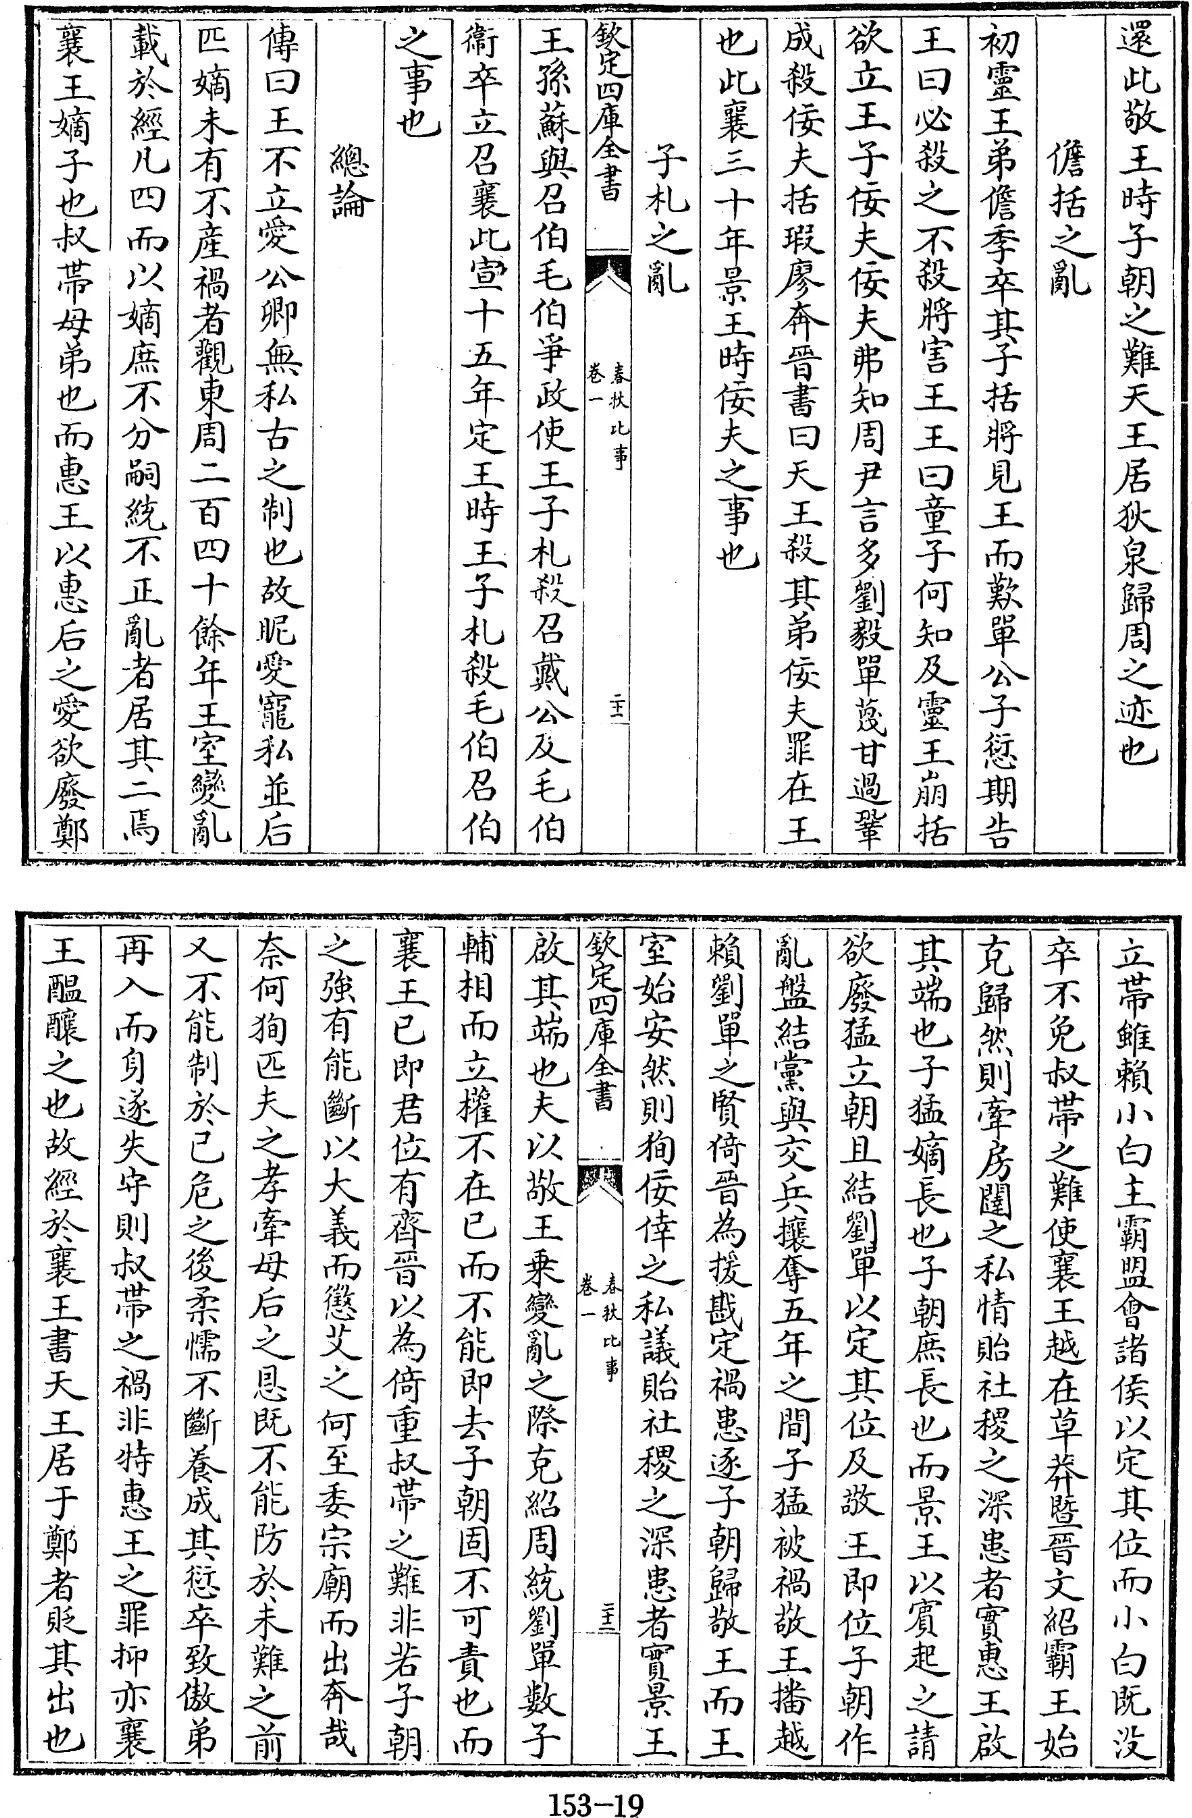 還此敬王時子朝之難天王居狄泉歸周之迹也
儋括之亂
初靈王弟儋季卒其子括將見王而歎單公子愆期告
王曰必殺之不殺將害王王曰童子何知及靈王崩括
欲立王子佞夫佞夫弗知周尹言多劉毅單蔑甘過鞏
成殺佞夫括瑕廖奔晉書曰天王殺其弟佞夫罪在王
也此襄三十年景王時佞夫之事也
子札之亂
欽定四庫全書
春秋比事
卷一
二十二
王孫蘇與召伯毛伯爭政使王子札殺召戴公及毛伯
衛卒立召襄此宣十五年定王時王子札殺毛伯召伯
之事也
總論
傳曰王不立愛公卿無私古之制也故昵愛寵私並后
匹嫡未有不產禍者觀東周二百四十餘年王室變亂
載於經凡四而以嫡庶不分嗣統不正亂者居其二焉
襄王嫡子也叔帶母弟也而惠王以惠后之愛欲廢鄭
立帶雖賴小白主霸盟會諸侯以定其位而小白既没
卒不免叔帶之難使襄王越在草莽暨晉文紹霸王始
克歸然則牽房闥之私情貽社稷之深患者實惠王啟
其端也子猛嫡長也子朝庶長也而景王以賓起之請
欲廢猛立朝且結劉單以定其位及敬王即位子朝作
亂盤結黨與交兵攘奪五年之間子猛被禍敬王播越
賴劉單之賢倚晉為援戡定禍患逐子朝歸敬王而王
室始安然則狥佞倖之私議貽社稷之深患者實景王
欽定四庫全書
春秋比事
卷一
二十三
啟其端也夫以敬王乗變亂之際克紹周統劉單數子
輔相而立權不在已而不能即去子朝固不可責也而
襄王已即君位有齊晉以為倚重叔帶之難非若子朝
之強有能斷以大義而懲艾之何至委宗廟而出奔哉
奈何狥匹夫之孝牽母后之恩既不能防於未難之前
又不能制於已危之後柔懦不斷養成其愆卒致傲弟
再入而身遂失守則叔帶之禍非特惠王之罪抑亦襄
王醞釀之也故經於襄王書天王居于鄭者貶其出也
153-19